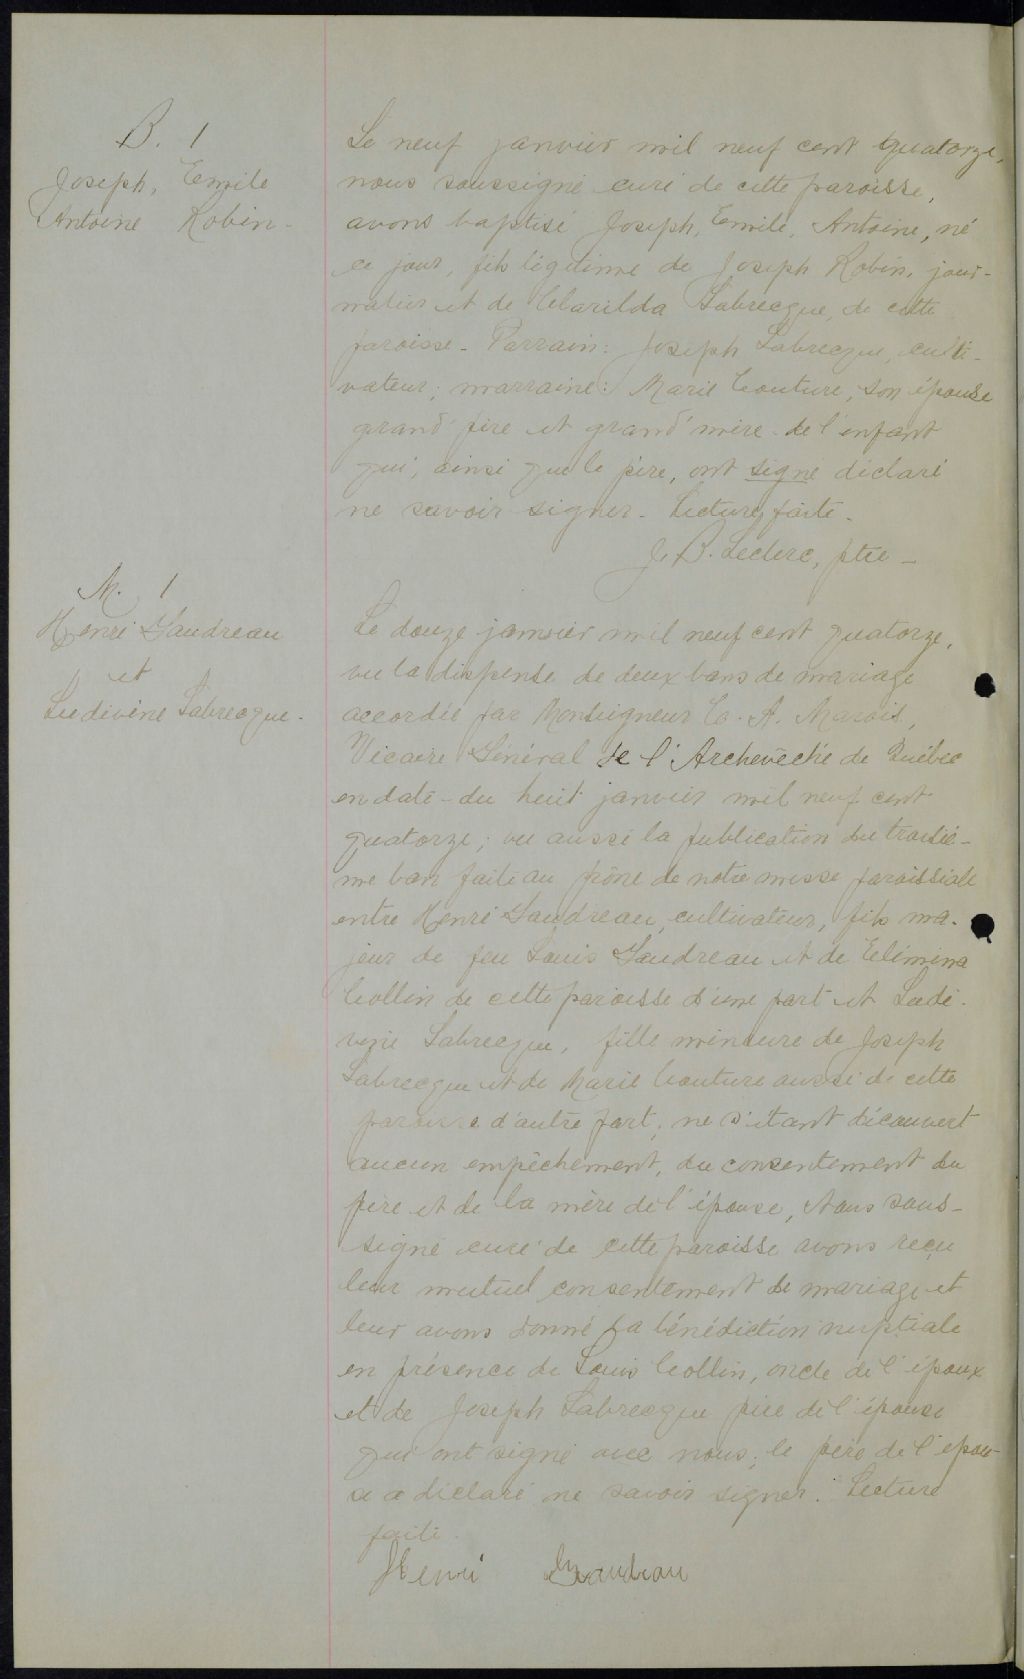 B. 1
Joseph, Emile
Antoine Robin-
Le neuf janvier mil neuf cent quatorze,
nous soussigné curé de cette paroisse,
avons baptisé Joseph, Emile, Antoine, né
ce jour, fils légitime de Joseph Robin, jour-
nalier et de Clarilda Labrecque, de cette
paroisse- Parrain: Joseph Labrecque, culti-
vateur; marraine: Marie Couture, son épouse
grand'père et grand'mère de l'enfant
qui, ainsi que le père, ont signé déclaré
ne savoir signer- Lecture faite-
J. B. Leclerc, ptre-
M. 1
Henri Gaudreau
et
Ludivine Labrecque-
Le douze janvier mil neuf cent quatorze,
vu la dispense de deux bans de mariage
accordée par Monseigneur C. A. Marois,
Vicaire Général de l'Archevêché de Québec
en date-du huit janvier mil neuf cent
quatorze; vu aussi la publication du troisiè-
me ban faite au prône de notre messe paroissiale
entre Henri Gaudreau, cultivateur, fils ma-
jeur de feu Louis Gaudreau et de Elémina
Collin de cette paroisse d'une part et Ludi-
vine Labrecque, fille mineure de Joseph
Labrecque et de Marie Couture aussi de cette
paroisse d'autre part; ne s'étant découvert
aucun empêchement, du consentement du
père et de la mère de l'épouse, Nous sous-
signé curé de cette paroisse avons reçu
leur mutuel consentement de mariage et
leur avons donné la bénédiction nuptiale
en présence de Louis Collin, oncle de l'époux
et de Joseph Labrecque père de l'épouse
qui ont signé avec nous; le père de l'épou-
se a déclaré ne savoir signer. Lecture
faite.
Henri Gaudreau